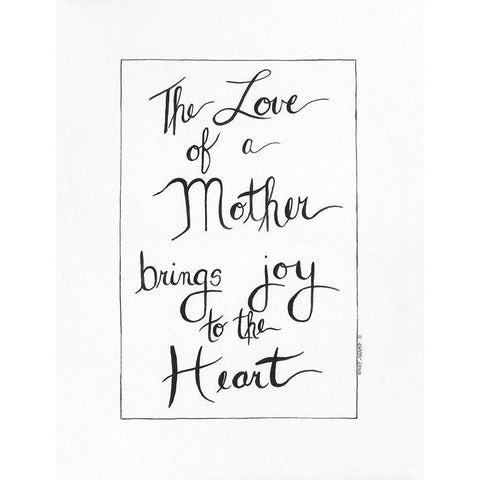 The Love
of a
Mother
brings joy
to the
Heart